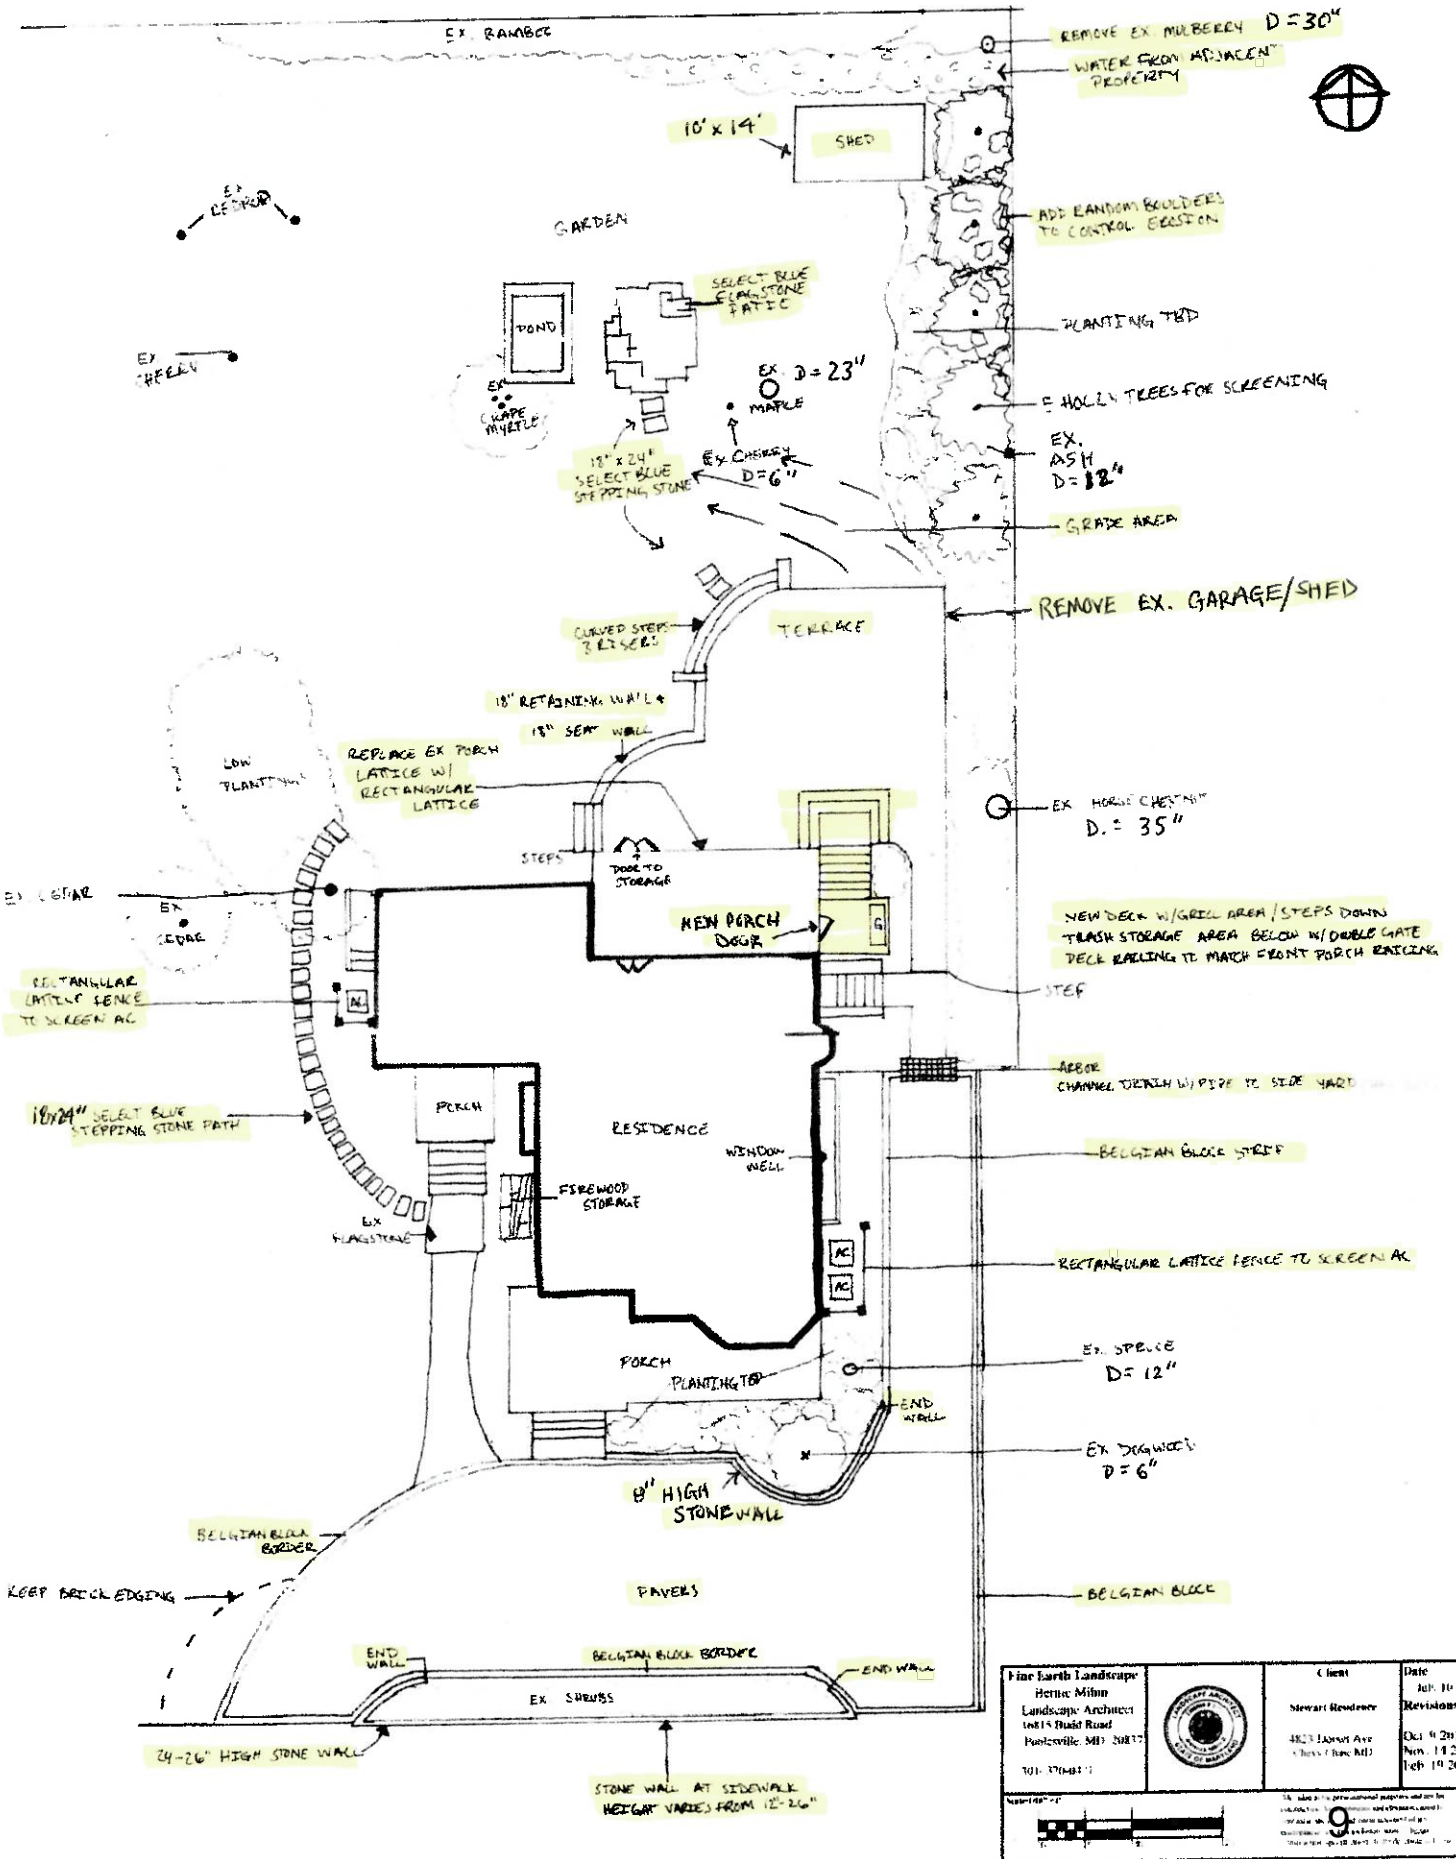 EX. BAMBOO
REMOVE EX. MULBERRY D = 30"
WATER FROM ADJACENT
PROPERTY
10' x 14'
SHED
EX
REDBUD
GARDEN
ADD RANDOM BOULDERS
TO CONTROL EROSION
SELECT BLUE
FLAGSTONE
PATIO
POND
PLANTING TBD
EX
CHERRY
EX
CRAPE
MYRTLE
EX. D = 23"
MAPLE
HOLLY TREES FOR SCREENING
EX.
ASH
D = 12"
18" x 24"
SELECT BLUE
STEPPING STONE
EX CHERRY
D = 6"
GRADE AREA
REMOVE EX. GARAGE/SHED
CURVED STEPS
3 RISERS
TERRACE
18" RETAINING WALL +
18" SEAT WALL
REPLACE EX PORCH
LATTICE W/
RECTANGULAR
LATTICE
LOW
PLANTINGS
EX HORSE CHESTNUT
D. = 35"
STEPS
DOOR TO
STORAGE
EX CEDAR
EX
CEDAR
NEW PORCH
DOOR
G
NEW DECK W/GRILL AREA / STEPS DOWN
TRASH STORAGE AREA BELOW W/ DOUBLE GATE
DECK RAILING TO MATCH FRONT PORCH RAILING
RECTANGULAR
LATTICE FENCE
TO SCREEN AC
AC
STEP
ARBOR
CHANNEL DRAIN W/PIPE TO SIDE YARD
18x24" SELECT BLUE
STEPPING STONE PATH
PORCH
RESIDENCE
WINDOW
WELL
BELGIAN BLOCK STRIP
FIREWOOD
STORAGE
EX
FLAGSTONE
AC
AC
RECTANGULAR LATTICE FENCE TO SCREEN AC
PORCH
PLANTING TBD
EX. SPRUCE
D = 12"
END
WALL
EX DOGWOOD
D = 6"
8" HIGH
STONE WALL
BELGIAN BLOCK
BORDER
KEEP BRICK EDGING
PAVERS
BELGIAN BLOCK
END
WALL
BELGIAN BLOCK BORDER
END WALL
EX SHRUBS
24-26" HIGH STONE WALL
STONE WALL AT SIDEWALK
HEIGHT VARIES FROM 12"-26"
Fine Earth Landscape
Landscape Architect
16815 Budd Road
Poolesville, MD 20837
LANDSCAPE ARCHITECT
STATE OF MARYLAND
Client
Stewart Residence
Date
Revisions
9